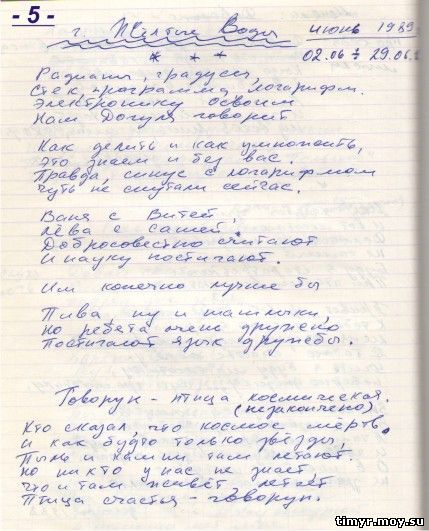 - 5 -
г. Жёлтые Воды
июнь 1989
02.06 ÷ 29.06.
* * *
Радианы, градусы,
Стек, программа, логарифм.
Электронику освоим
Нам Догуля говорит
Как делить и как умножать,
Это знаем и без вас.
Правда, синус с логарифмом
Чуть не спутали сейчас.
Ваня с Витей,
Лёва с Сашей
Добросовестно считают
И науку постигают.
Им конечно лучше бы
Пива, ну и шашлычки,
Но ребята очень дружно
Постигают язык дружбы.
Говорун - птица космическая.
(незакончено)
Кто сказал, что космос мёртв,
И как будто только звёзды,
Пыль и камни там летают.
Но никто у нас не знает,
Что и там живёт, летает
Птица счастья - говорун.
timyr.moy.su